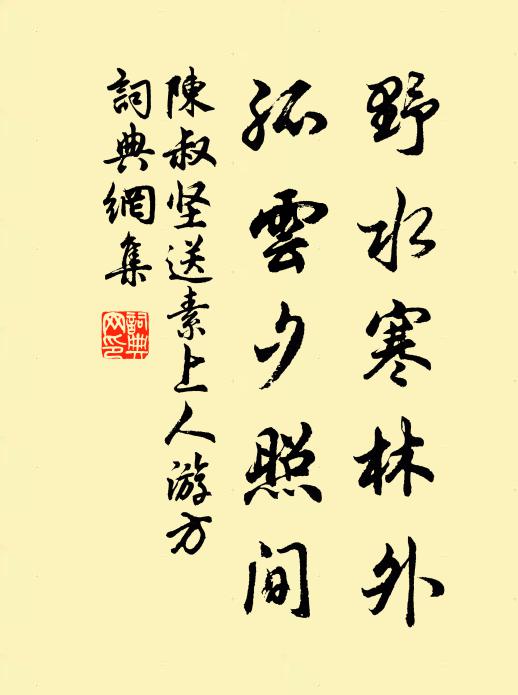 野水寒林外
孤雲夕照间
陳叔坚送素上人游方
詞典網集
詞典网印